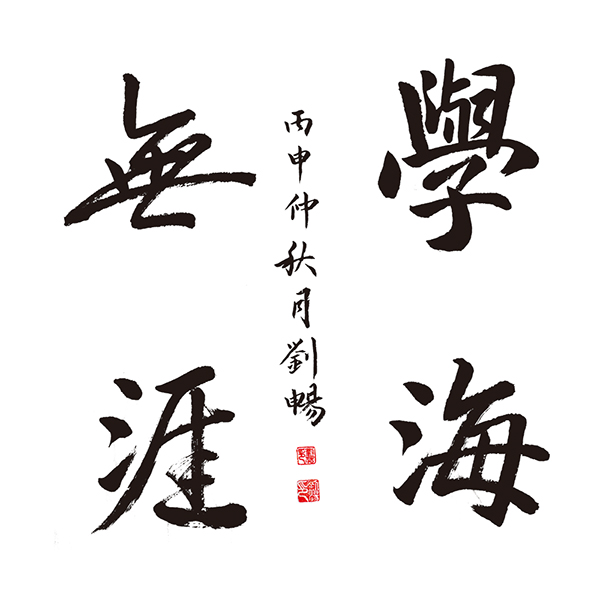 學海
無涯
丙申仲秋月劉暢